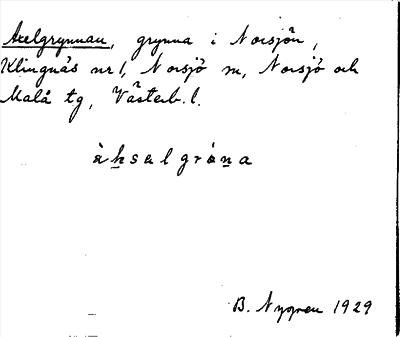 Axelgrynnan, grynna i Norsjön,
Klingnäs nr 1, Norsjö sn, Norsjö och
Malå tg, Västerb. l.
B. Nygren 1929